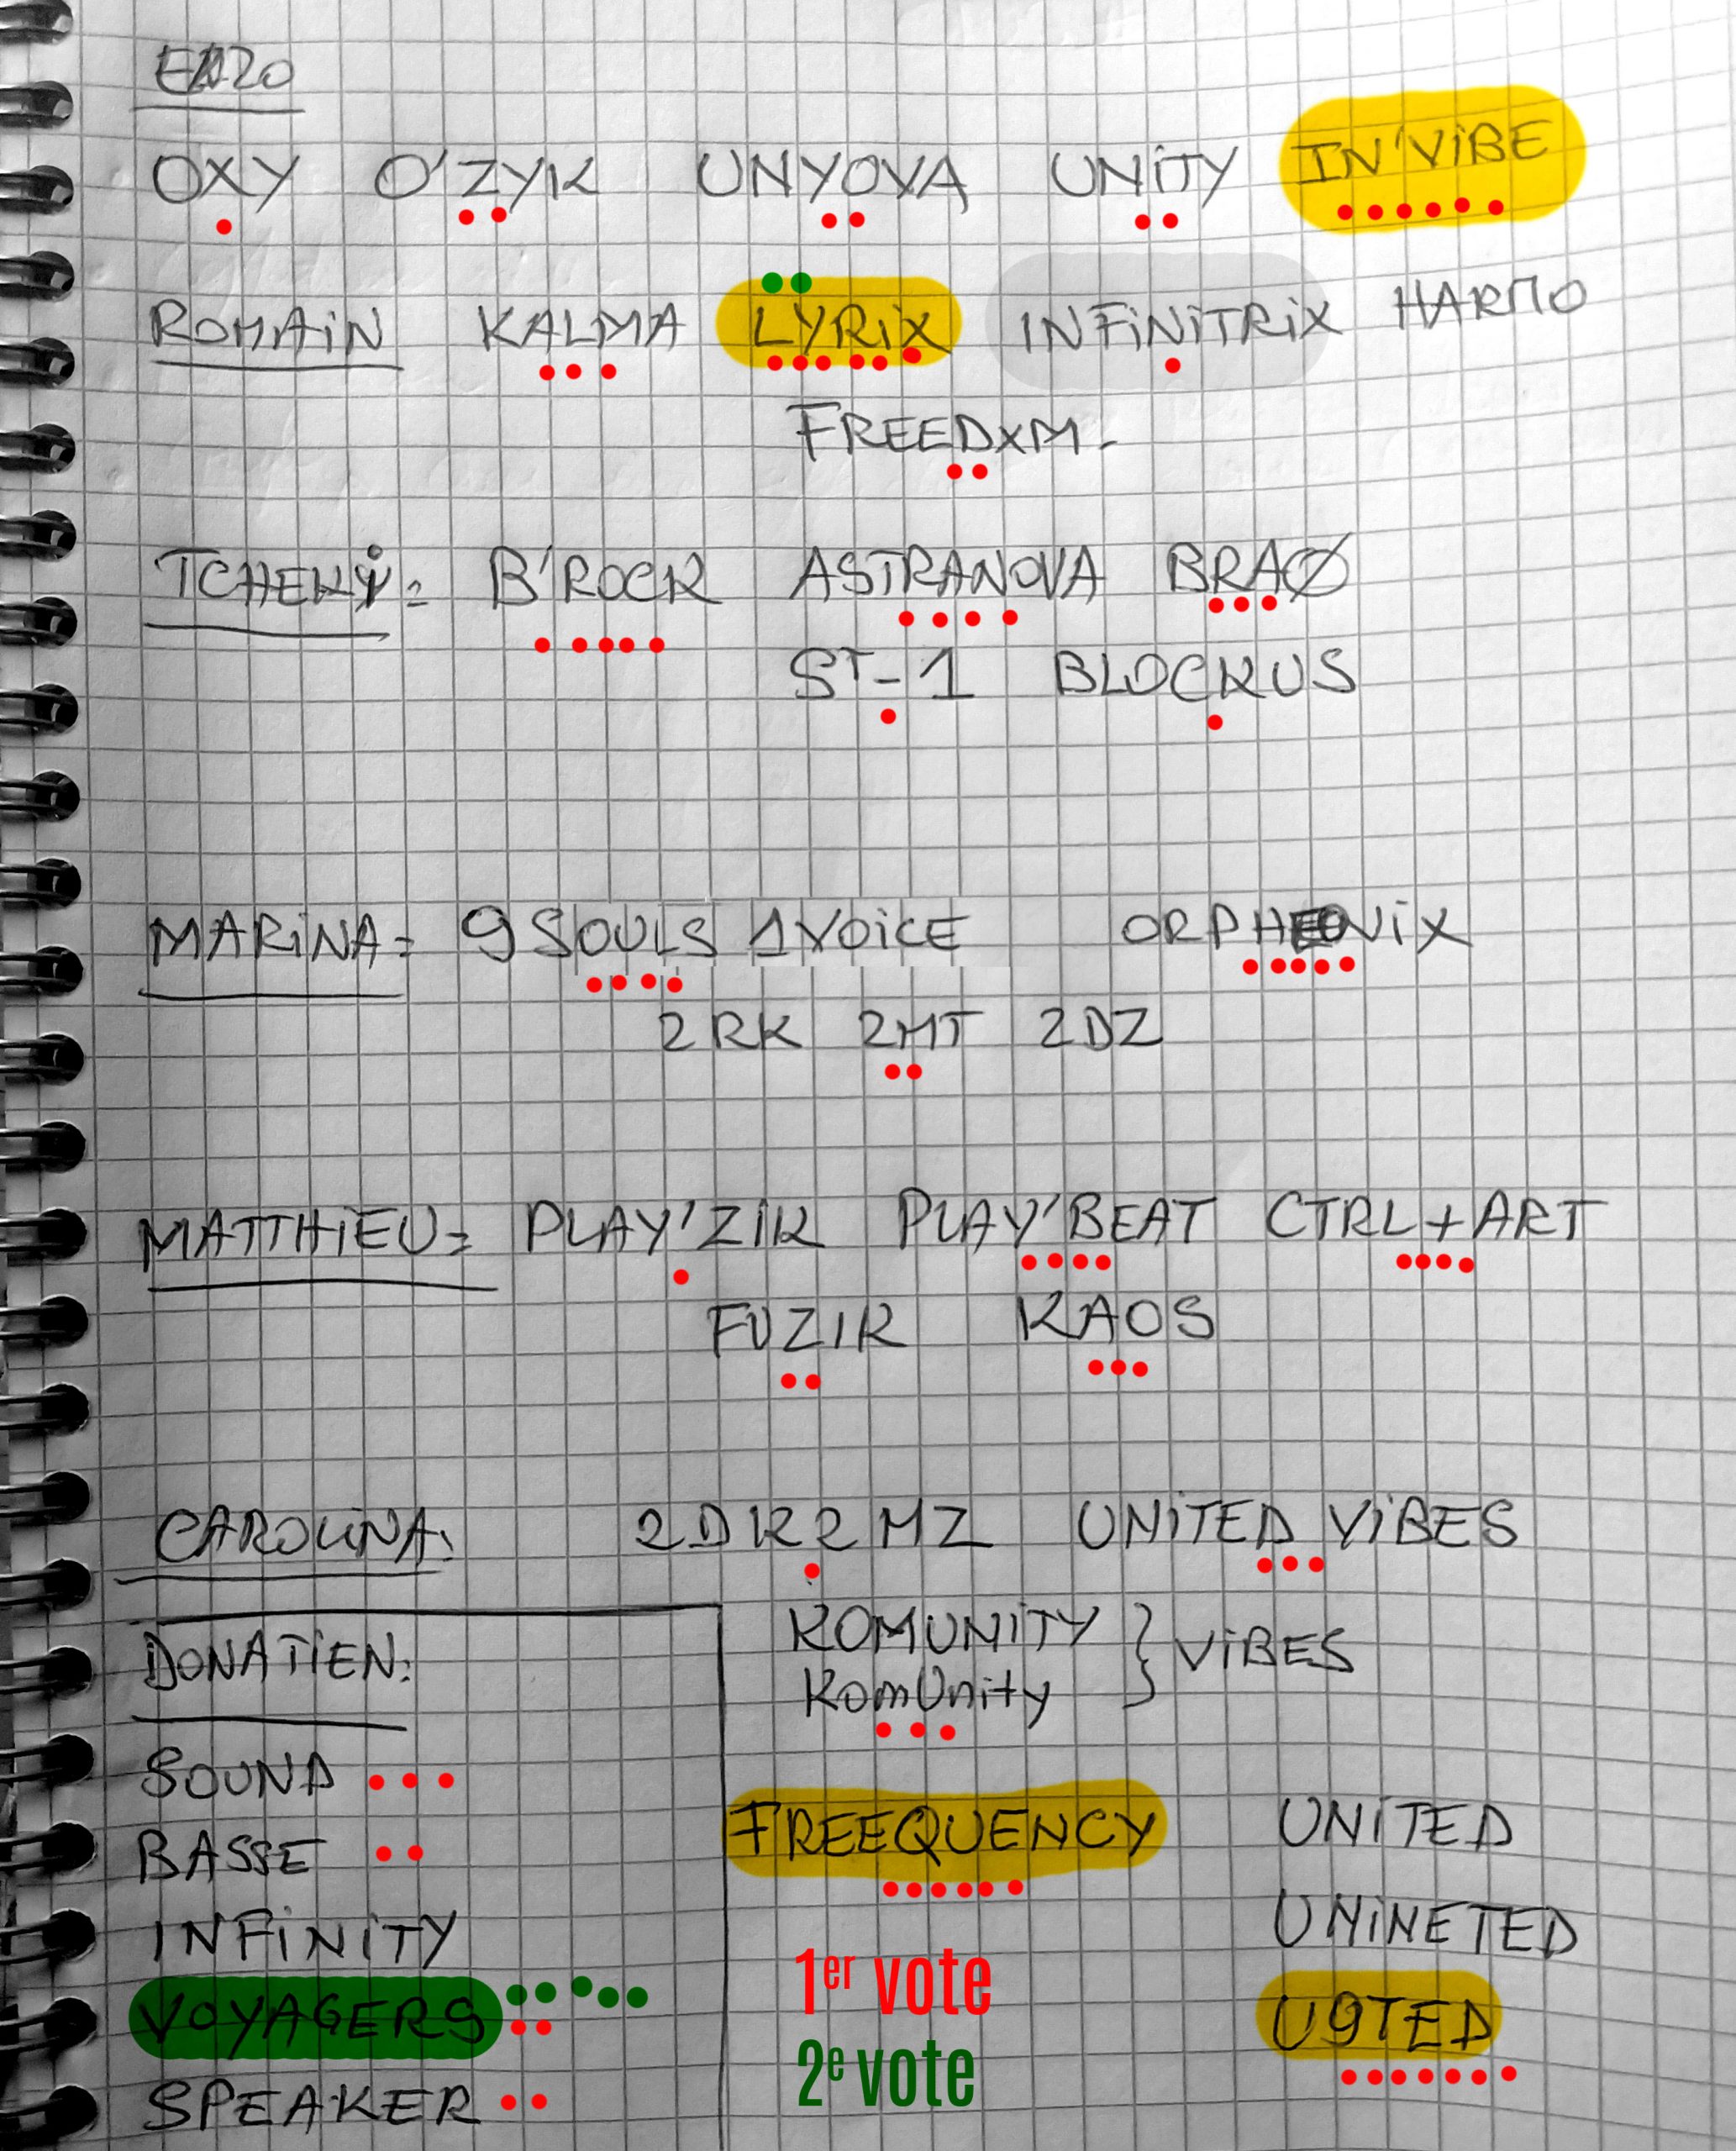 ENZO
OXY O'ZYK UNYOVA UNiTY IN'ViBE
ROMAiN KALMA LYRiX INFiNiTRiX HARMO
FREEDxM.
TCHEKY: B'ROCK ASTRANOVA BRAØ
ST-1 BLOCKUS
MARiNA= 9 SOULS 1 VOiCE ORPHEONiX
2RK 2MT 2DZ
MATTHiEU= PLAY'ZIK PLAY'BEAT CTRL+ART
FUZIK KAOS
CAROLiNA: 2DK2MZ UNiTED ViBES
KOMUNiTY } ViBES
KomUnity
DONATiEN:
SOUND
BASSE
INFiNiTY
VOYAGER9
SPEAKER
FREEQUENCY
UNiTED
UNiNETED
U9TED
1er vote
2e vote